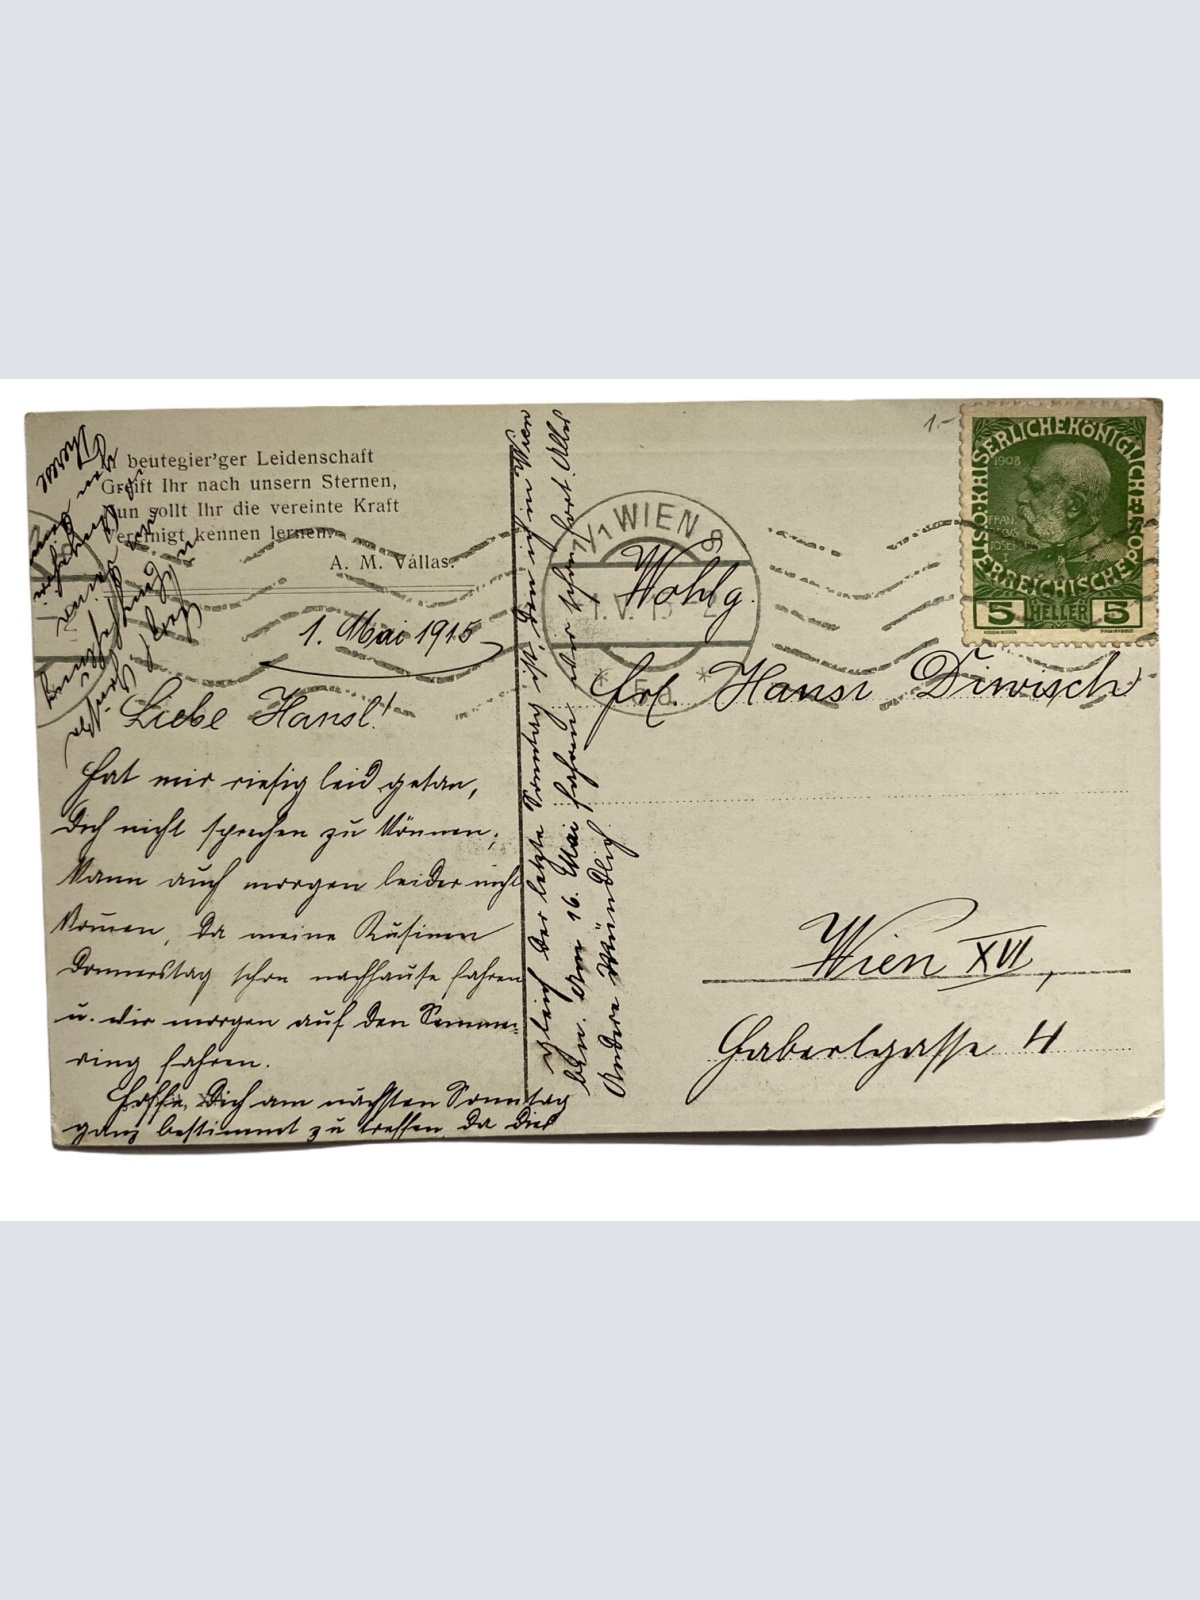 In beutegier'ger Leidenschaft
Greift Ihr nach unsern Sternen,
Nun sollt Ihr die vereinte Kraft
Vereinigt kennen lernen.
A. M. Vállas.
1. Mai 1915
Liebe Hansl!
Hat mir riesig leid getan,
Dich nicht sprechen zu können,
kann auch morgen leider nicht
kommen, da meine Kusinen
Donnerstag schon nachhause fahren
u. wir morgen auf den Semme-
ring fahren.
Hoffe, Dich am nächsten Sonntag
ganz bestimmt zu treffen, da dies
gleich der letzte Sonntag ist, den ich in Wien
bin. Am 16. Mai fahren wir schon fort. Alles
Andere mündlich.
Therese
1.-
1/1 WIEN 8
1.V.15
* 5b *
KAISERLICHE KÖNIGLICHE ÖSTERREICHISCHE POST
1908
FRANZ JOSEF I
5 HELLER 5
Wohlg.
Frl. Hansi Diwisch
Wien XVI,
Gaberlgasse 4